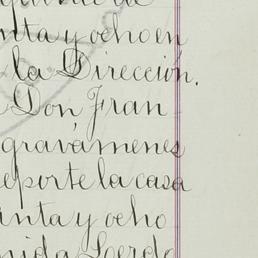 nta y ocho en
la Dirección.
Don Fran
gravámenes
eporte la casa
nta y ocho
nida Lerdo